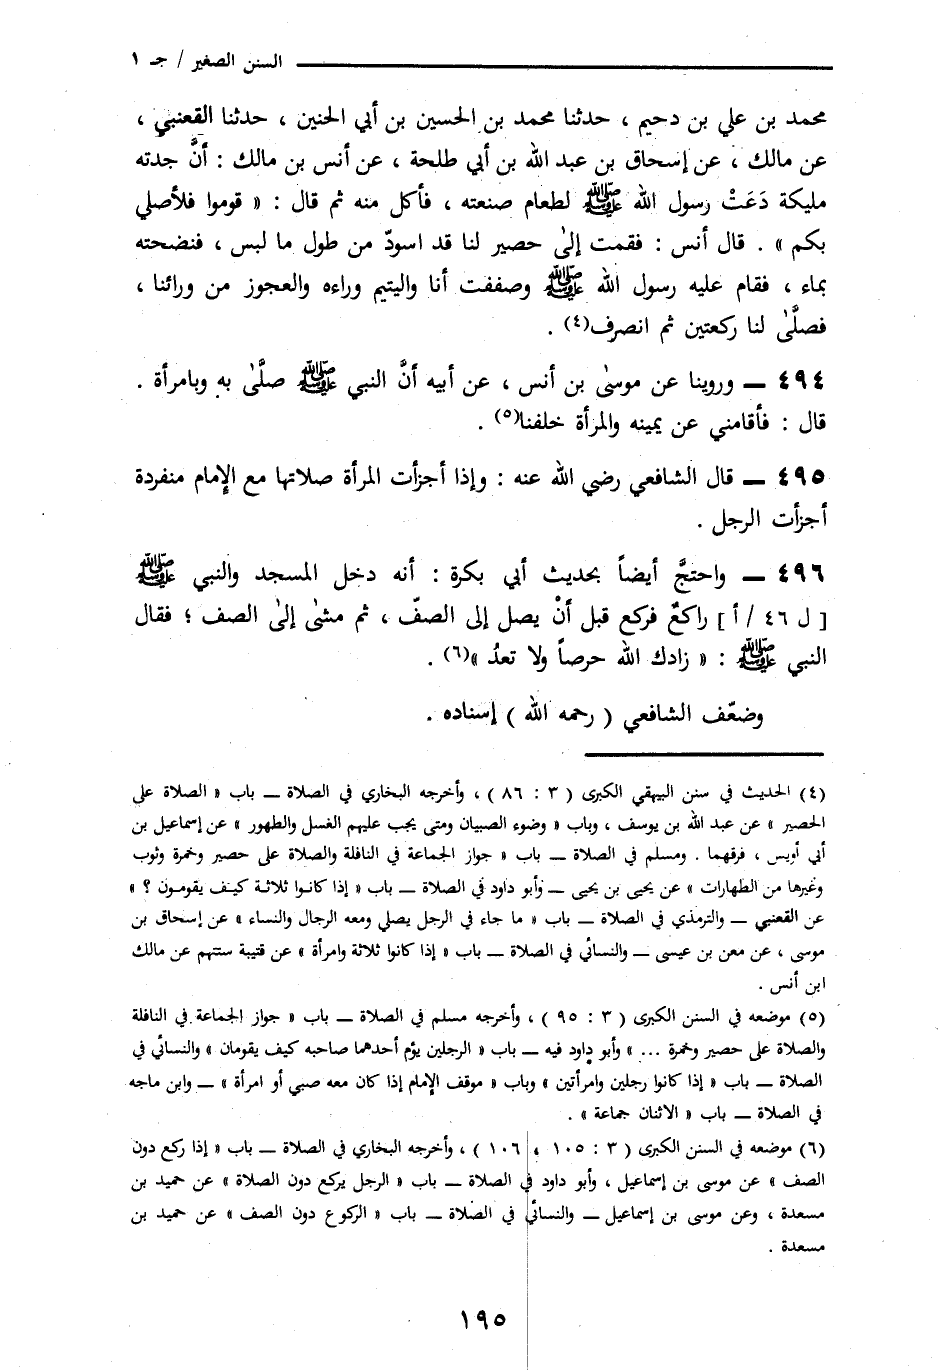 السنن الصغير / جـ ١
محمد بن علي بن دحيم ، حدثنا محمد بن الحسين بن أبي الحنين ، حدثنا القعنبي ،
عن مالك ، عن إسحاق بن عبد الله بن أبي طلحة ، عن أنس بن مالك : أنَّ جدته
مليكة دَعَتْ رسول الله ﷺ لطعام صنعته ، فأكل منه ثم قال : « قوموا فلأصلي
بكم » . قال أنس : فقمت إلىٰ حصير لنا قد اسودّ من طول ما لبس ، فنضحته
بماء ، فقام عليه رسول الله ﷺ وصففت أنا واليتيم وراءه والعجوز من ورائنا ،
فصلَّىٰ لنا ركعتين ثم انصرف(٤) .
٤٩٤ ــ وروينا عن موسىٰ بن أنس ، عن أبيه أنَّ النبي ﷺ صلَّىٰ به وبامرأة .
قال : فأقامني عن يمينه والمرأة خلفنا(٥) .
٤٩٥ ــ قال الشافعي رضي الله عنه : وإذا أجزأت المرأة صلاتها مع الإمام منفردة
أجزأت الرجل .
٤٩٦ ــ واحتجَّ أيضاً بحديث أبي بكرة : أنه دخل المسجد والنبي ﷺ
[ ل ٤٦ / أ ] راكعٌ فركع قبل أنْ يصل إلى الصفّ ، ثم مشىٰ إلىٰ الصف ؛ فقال
النبي ﷺ : « زادك الله حرصاً ولا تعدُ »(٦) .
وضعّف الشافعي ( رحمه الله ) إسناده .
(٤) الحديث في سنن البيهقي الكبرى ( ٣ : ٨٦ ) ، وأخرجه البخاري في الصلاة ــ باب « الصلاة على
الحصير » عن عبد الله بن يوسف ، وباب « وضوء الصبيان ومتى يجب عليهم الغسل والطهور » عن إسماعيل بن
أبي أويس ، فرقهما . ومسلم في الصلاة ــ باب « جواز الجماعة في النافلة والصلاة على حصير وخمرة وثوب
وغيرها من الطهارات » عن يحيى بن يحيى ــ وأبو داود في الصلاة ــ باب « إذا كانوا ثلاثة كيف يقومون ؟ »
عن القعنبي ــ والترمذي في الصلاة ــ باب « ما جاء في الرجل يصلي ومعه الرجال والنساء » عن إسحاق بن
موسى ، عن معن بن عيسى ــ والنسائي في الصلاة ــ باب « إذا كانوا ثلاثة وامرأة » عن قتيبة ستتهم عن مالك
ابن أنس .
(٥) موضعه في السنن الكبرى ( ٣ : ٩٥ ) ، وأخرجه مسلم في الصلاة ــ باب « جواز الجماعة في النافلة
والصلاة على حصير وخمرة ... » وأبو داود فيه ــ باب « الرجلين يؤم أحدهما صاحبه كيف يقومان » والنسائي في
الصلاة ــ باب « إذا كانوا رجلين وامرأتين » وباب « موقف الإمام إذا كان معه صبي أو امرأة » ــ وابن ماجه
في الصلاة ــ باب « الاثنان جماعة » .
(٦) موضعه في السنن الكبرى ( ٣ : ١٠٥ ، ١٠٦ ) ، وأخرجه البخاري في الصلاة ــ باب « إذا ركع دون
الصف » عن موسى بن إسماعيل ، وأبو داود في الصلاة ــ باب « الرجل يركع دون الصلاة » عن حميد بن
مسعدة ، وعن موسى بن إسماعيل ــ والنسائي في الصلاة ــ باب « الركوع دون الصف » عن حميد بن
مسعدة .
١٩٥